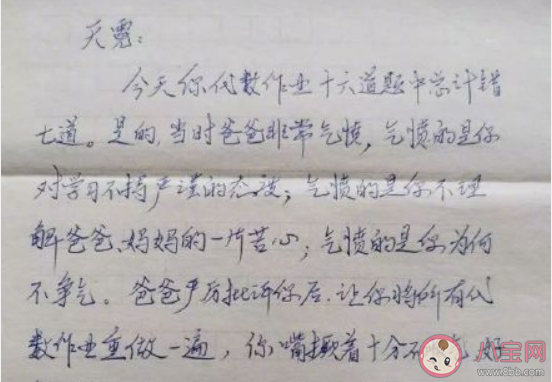 天霓：
今天你代数作业十六道题中总计错
七道。是的，当时爸爸非常气愤，气愤的是你
对学习不持严谨的态度；气愤的是你不理
解爸爸、妈妈的一片苦心；气愤的是你为何
不争气。爸爸严厉批评你后，让你将所有代
数作业重做一遍，你嘴撅着十分不 好
八宝网
www.r8bao.com